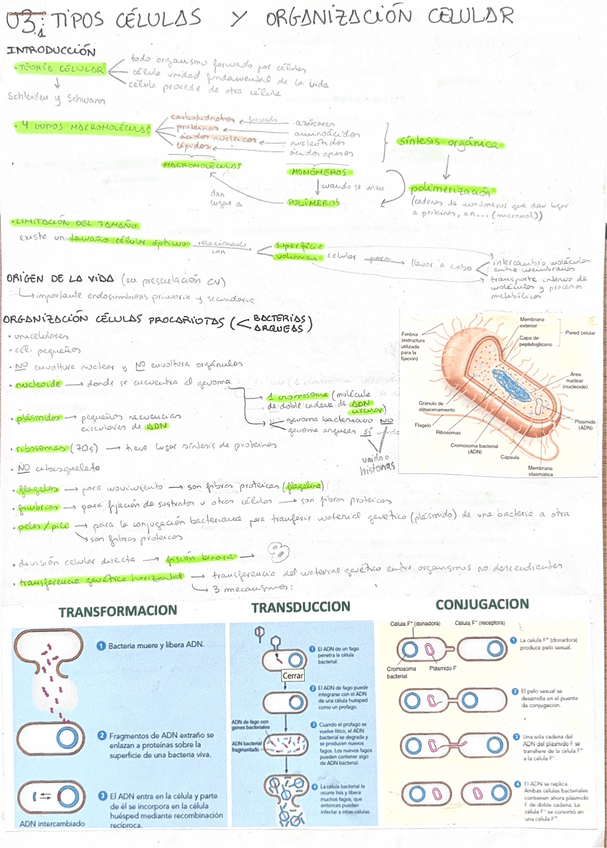 U3.1: TIPOS CÉLULAS Y ORGANIZACIÓN CELULAR
INTRODUCCIÓN
• TEORÍA CELULAR
todo organismo formado por células
célula unidad fundamental de la vida
célula procede de otra célula
Schleiden y Schwann
• 4 GRUPOS MACROMOLÉCULAS
carbohidratos azúcares
proteínas aminoácidos
ácidos nucleicos nucleótidos
lípidos ácidos grasos
síntesis orgánica
MACROMOLÉCULAS
MONÓMEROS
cuando se unen
dan lugar a
POLÍMEROS
polimerización
(cadenas de monómeros que dan lugar
a proteínas, an... (macromol))
• LIMITACIÓN DEL TAMAÑO
existe un tamaño celular óptimo relacionado con
superficie
volumen celular para llevar a cabo
intercambio moléculas
entre membranas
transporte interno de
moléculas y procesos
metabólicos
ORIGEN DE LA VIDA (en presentación CV)
importante endosimbiosis primaria y secundaria
ORGANIZACIÓN CÉLULAS PROCARIOTAS (< BACTERIAS ARQUEAS)
• unicelulares
• cél. pequeñas
• NO envoltura nuclear y NO envoltura orgánulos
• nucleoide → donde se encuentra el genoma
1 cromosoma (molécula
de doble cadena de ADN
circular)
genoma bacteriano NO
genoma arqueas SÍ
unido a
histonas
• plásmidos → pequeñas secuencias
circulares de ADN
• ribosomas (70s) → tiene lugar síntesis de proteínas
• NO citoesqueleto
• flagelos → para movimiento → son fibras proteicas (flagelina)
• fimbrias → para fijación de sustratos u otras células → son fibras proteicas
• pelos/pili → para la conjugación bacteriana para transferir material genético (plásmido) de una bacteria a otra
son fibras proteicas
• división celular directa → fisión binaria
• transferencia genética horizontal → transferencia del material genético entre organismos no descendientes
3 mecanismos:
Fimbria
(estructura
utilizada
para la
fijación)
Membrana
exterior
Capa de
peptidoglicano
Pared celular
Área
nuclear
(nucleoide)
Plásmido
(ADN)
Gránulo de
almacenamiento
Flagelo
Ribosomas
Cromosoma bacterial
(ADN)
Cápsula
Membrana
plasmática
TRANSFORMACION
1 Bacteria muere y libera ADN.
2 Fragmentos de ADN extraño se
enlazan a proteínas sobre la
superficie de una bacteria viva.
3 El ADN entra en la célula y parte
de él se incorpora en la célula
huésped mediante recombinación
recíproca.
ADN intercambiado
TRANSDUCCION
1 El ADN de un fago
penetra la célula
bacterial.
Cerrar
2 El ADN de fago puede
integrarse con el ADN
de una célula huésped
como un profago.
ADN de fago con
genes bacteriales
ADN bacterial
fragmentado
3 Cuando el profago se
vuelve lítico, el ADN
bacterial se degrada y
se producen nuevos
fagos. Los nuevos fagos
pueden contener algo
de ADN bacterial.
4 La célula bacterial la
ocurre lisis y libera
muchos fagos, que
entonces pueden
infectar a otras células.
CONJUGACION
Célula F⁺ (donadora)
Célula F⁻ (receptora)
Cromosoma
bacterial
Plásmido F
1 La célula F⁺ (donadora)
produce pelo sexual.
2 El pelo sexual se
desarrolla en el puente
de conjugación.
3 Una sola cadena del
ADN del plásmido F se
transfiere de la célula F⁺
a la célula F⁻.
4 El ADN se replica.
Ambas células bacteriales
contienen ahora plásmido
F de doble cadena. La
célula F⁻ se convirtió en
una célula F⁺.